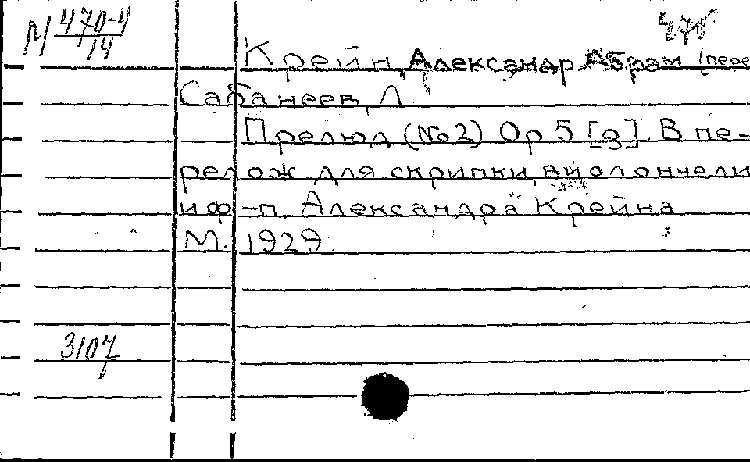 М 470-4
14
470
Крейн, Александр Абрам (пере
Сабанеев, Л
Прелюд (№2) Op 5 [g]. В пе-
релож для скрипки, виолончели
и ф-п. Александра Крейна
М. 1929.
3107